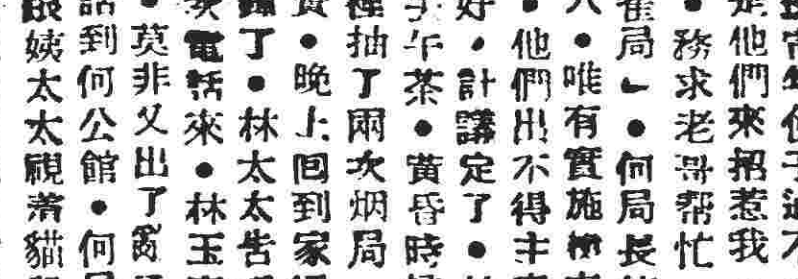 是他們來招惹我
●務求老哥帮忙
崔局⌙●何局長
八●唯有實施
●他們出不得主
好，計講定了●
子午茶●黄昏時
抽了兩次烟局
●晚上回到家
了●林太太告
電話來●林玉
●莫非又出了
話到何公館●何
姨太太視若貓